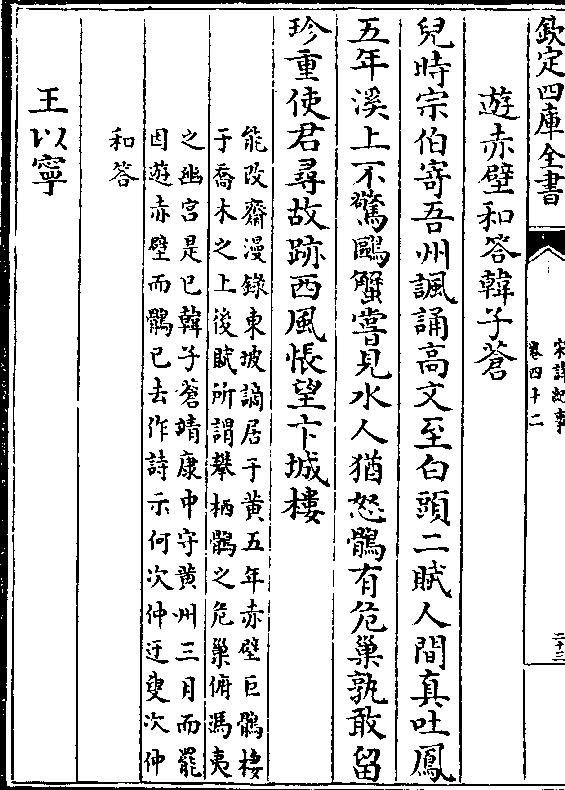 欽定四庫全書
宋詩紀事
卷四十二
二十三
遊赤壁和答韓子蒼
兒時宗伯寄吾州諷誦高文至白頭二賦人間真吐鳳
五年溪上不驚鷗蟹嘗見水人猶怒鶻有危巢孰敢留
珍重使君尋故跡西風悵望卞城樓
能改齋漫錄東坡謫居于黃五年赤壁巨鶻棲
于喬木之上後賦所謂攀栖鶻之危巢俯馮夷
之幽宮是已韓子蒼靖康中守黃州三月而罷
因遊赤壁而鶻已去作詩示何次仲迂叟次仲
和答
王以寧